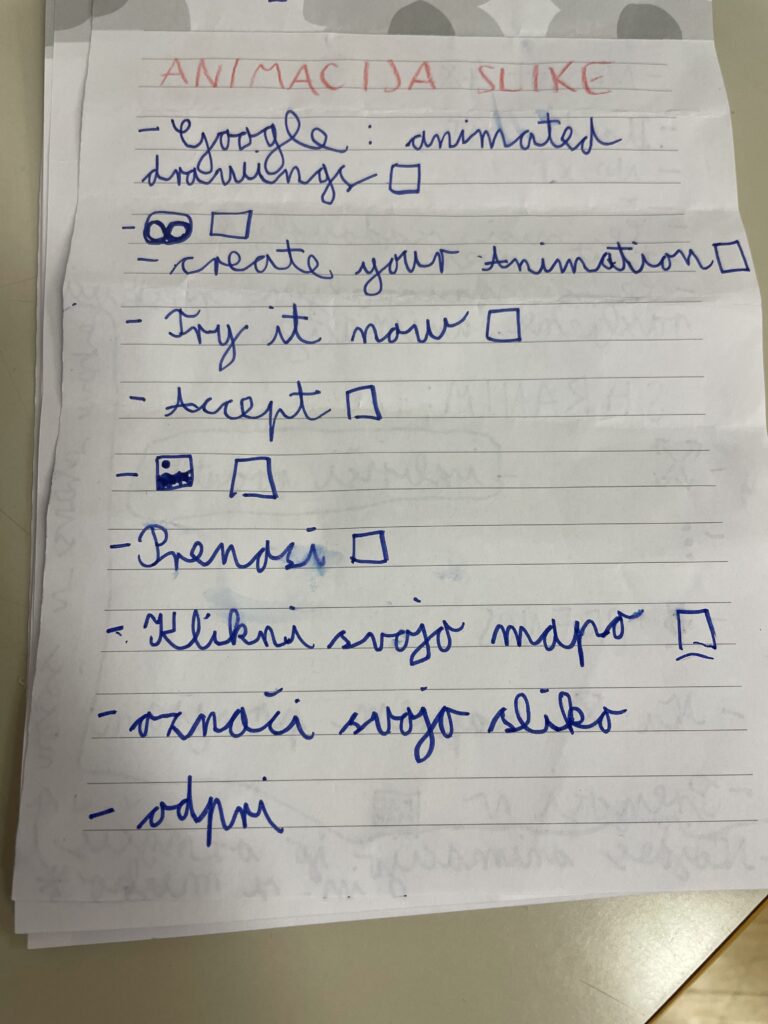 ANIMACIJA SLIKE
- Google : animated
drawings
- create your Animation
- Try it now
- Accept
- Prenosi
- Klikni svojo mapo
- označi svojo sliko
- odpri